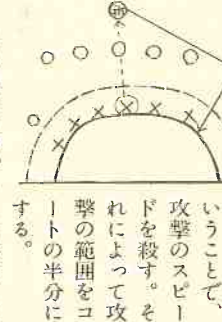 いうことで、
攻撃のスピー
ドを殺す。そ
れによって攻
撃の範囲をコ
ートの半分に
する。